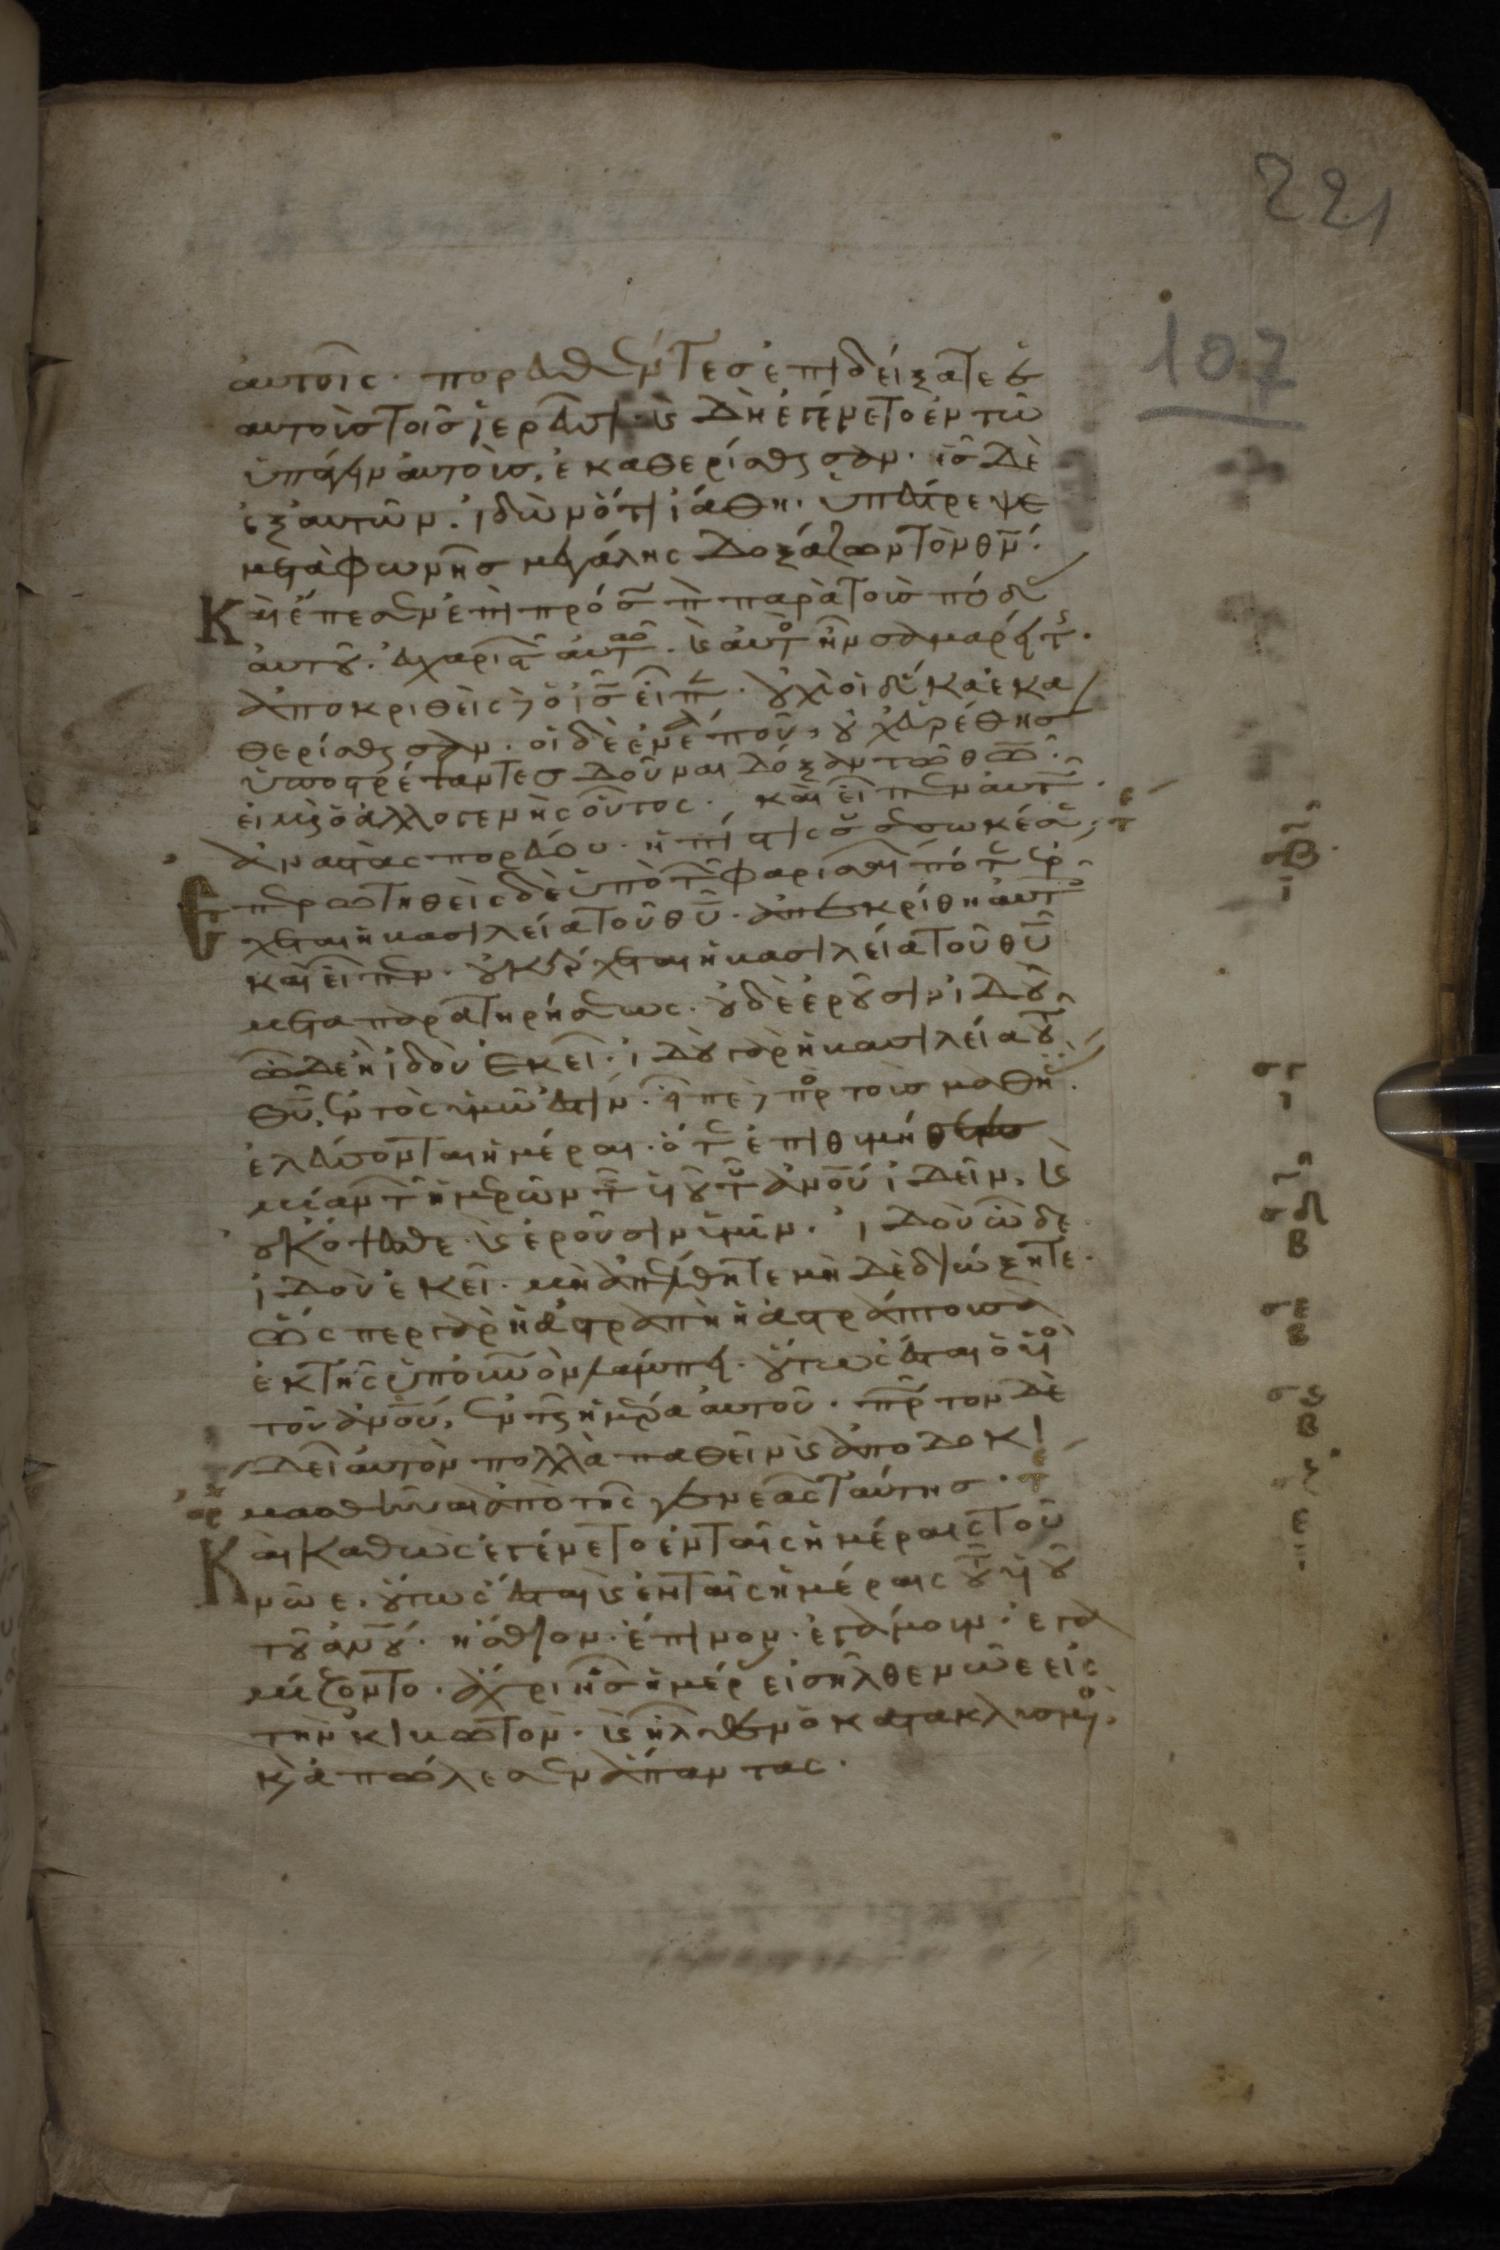 221
107
αὐτοῖς· πορευθέντες ἐπιδείξατε ἑ
αυτοὺς τοῖς ἱερεῦσι· κ δὴ ἐγένετο ἐν τῶ
ὑπάγειν αὐτοὺς, ἐκαθερίσθησαν· εἷς δὲ
ἐξ αυτῶν· ἰδὼν ὅτι ἰάθη· ὑπέστρεψε
μετὰ φωνῆς μεγάλης δοξάζων τὸν θν·
Και ἔπεσεν ἐπὶ πρόσ π παρὰ τοὺς πόδ
ἀυτοῦ· εὐχαριστ αὐτῶ· κ αὐτὸ ἦν σαμαρείτ·
ἀποκριθεὶς δ ὁ ις εἶπ· οὐχὶ οἱ δέκα ἐκα
θερίσθησαν· οἱ δὲ ἐννέα ποῦ, οὐχ εὑρέθησ
ὑποστρέψαντες δοῦναι δόξαν τῶ θω·
εἰ μὴ ὁ ἀλλογενὴς οὗτος· καὶ εἶπεν αυτ·
ἀναστὰς πορεύου· ἡ πίστις σ σέσωκέ σ
Επερωτηθεὶς δὲ ὑπὸ τ φαρισαί πότ ἔρ
χεται ἡ βασιλεία τοῦ θυ· ἀπεκρίθη αυτ
και εἶπεν· οὐκ ἔρχεται ἡ βασιλεία τοῦ θυ
μετα παρατηρήσεως· οὐδὲ ἐροῦσιν ἰδοὺ
ὧδε ἢ ἰδοὺ ἐκεῖ· ἰδοὺ γὰρ ἡ βασιλεία τοῦ
θυ, ἐντὸς ὑμῶν ἐστίν· εἶπε δ πρ τοὺς μαθη·
ἐλεύσονται ἡμέραι· ὅτ ἐπιθυμήσετε
μίαν τ ἡμερῶν τ υυ τ ανου ἰδεῖν, κ
οὐκ ὄψεσθε· κ ἐροῦσιν ὑμῖν· ἰδοὺ ὧδε
ἰδοὺ ἐκεῖ· μὴ ἀπέλθητε μηδὲ διώξητε·
ὥσπερ γὰρ ἡ ἀστραπὴ ἡ ἀστράπτουσα
ἐκ τῆς ὑπ οὐνὸν λάμπει· οὕτως ἔσται ὁ υς
τοῦ ανου, ἐν τῆ ἡμέρα αυτοῦ· πρ τον δὲ
δεῖ αυτὸν πολλὰ παθεῖν κ ἀποδοκι
μασθῆναι ἀπὸ τῆς γενεᾶς ταύτης·
Και καθὼς ἐγένετο ἐν ταῖς ἡμέραις τοῦ
νῶε· οὕτως ἔσται κ ἐν ταῖς ἡμέραις τοῦ υυ
τοῦ ανου· ἤσθιον· ἔπινον· ἐγάμουν· ἐγα
μίζοντο· ἄχρι ἧς ἡμέρ εἰσῆλθε νῶε εἰς
τὴν κιβωτόν· κ ἦλθεν ὁ κατακλυσμός,
κ ἀπώλεσεν ἅπαντας·